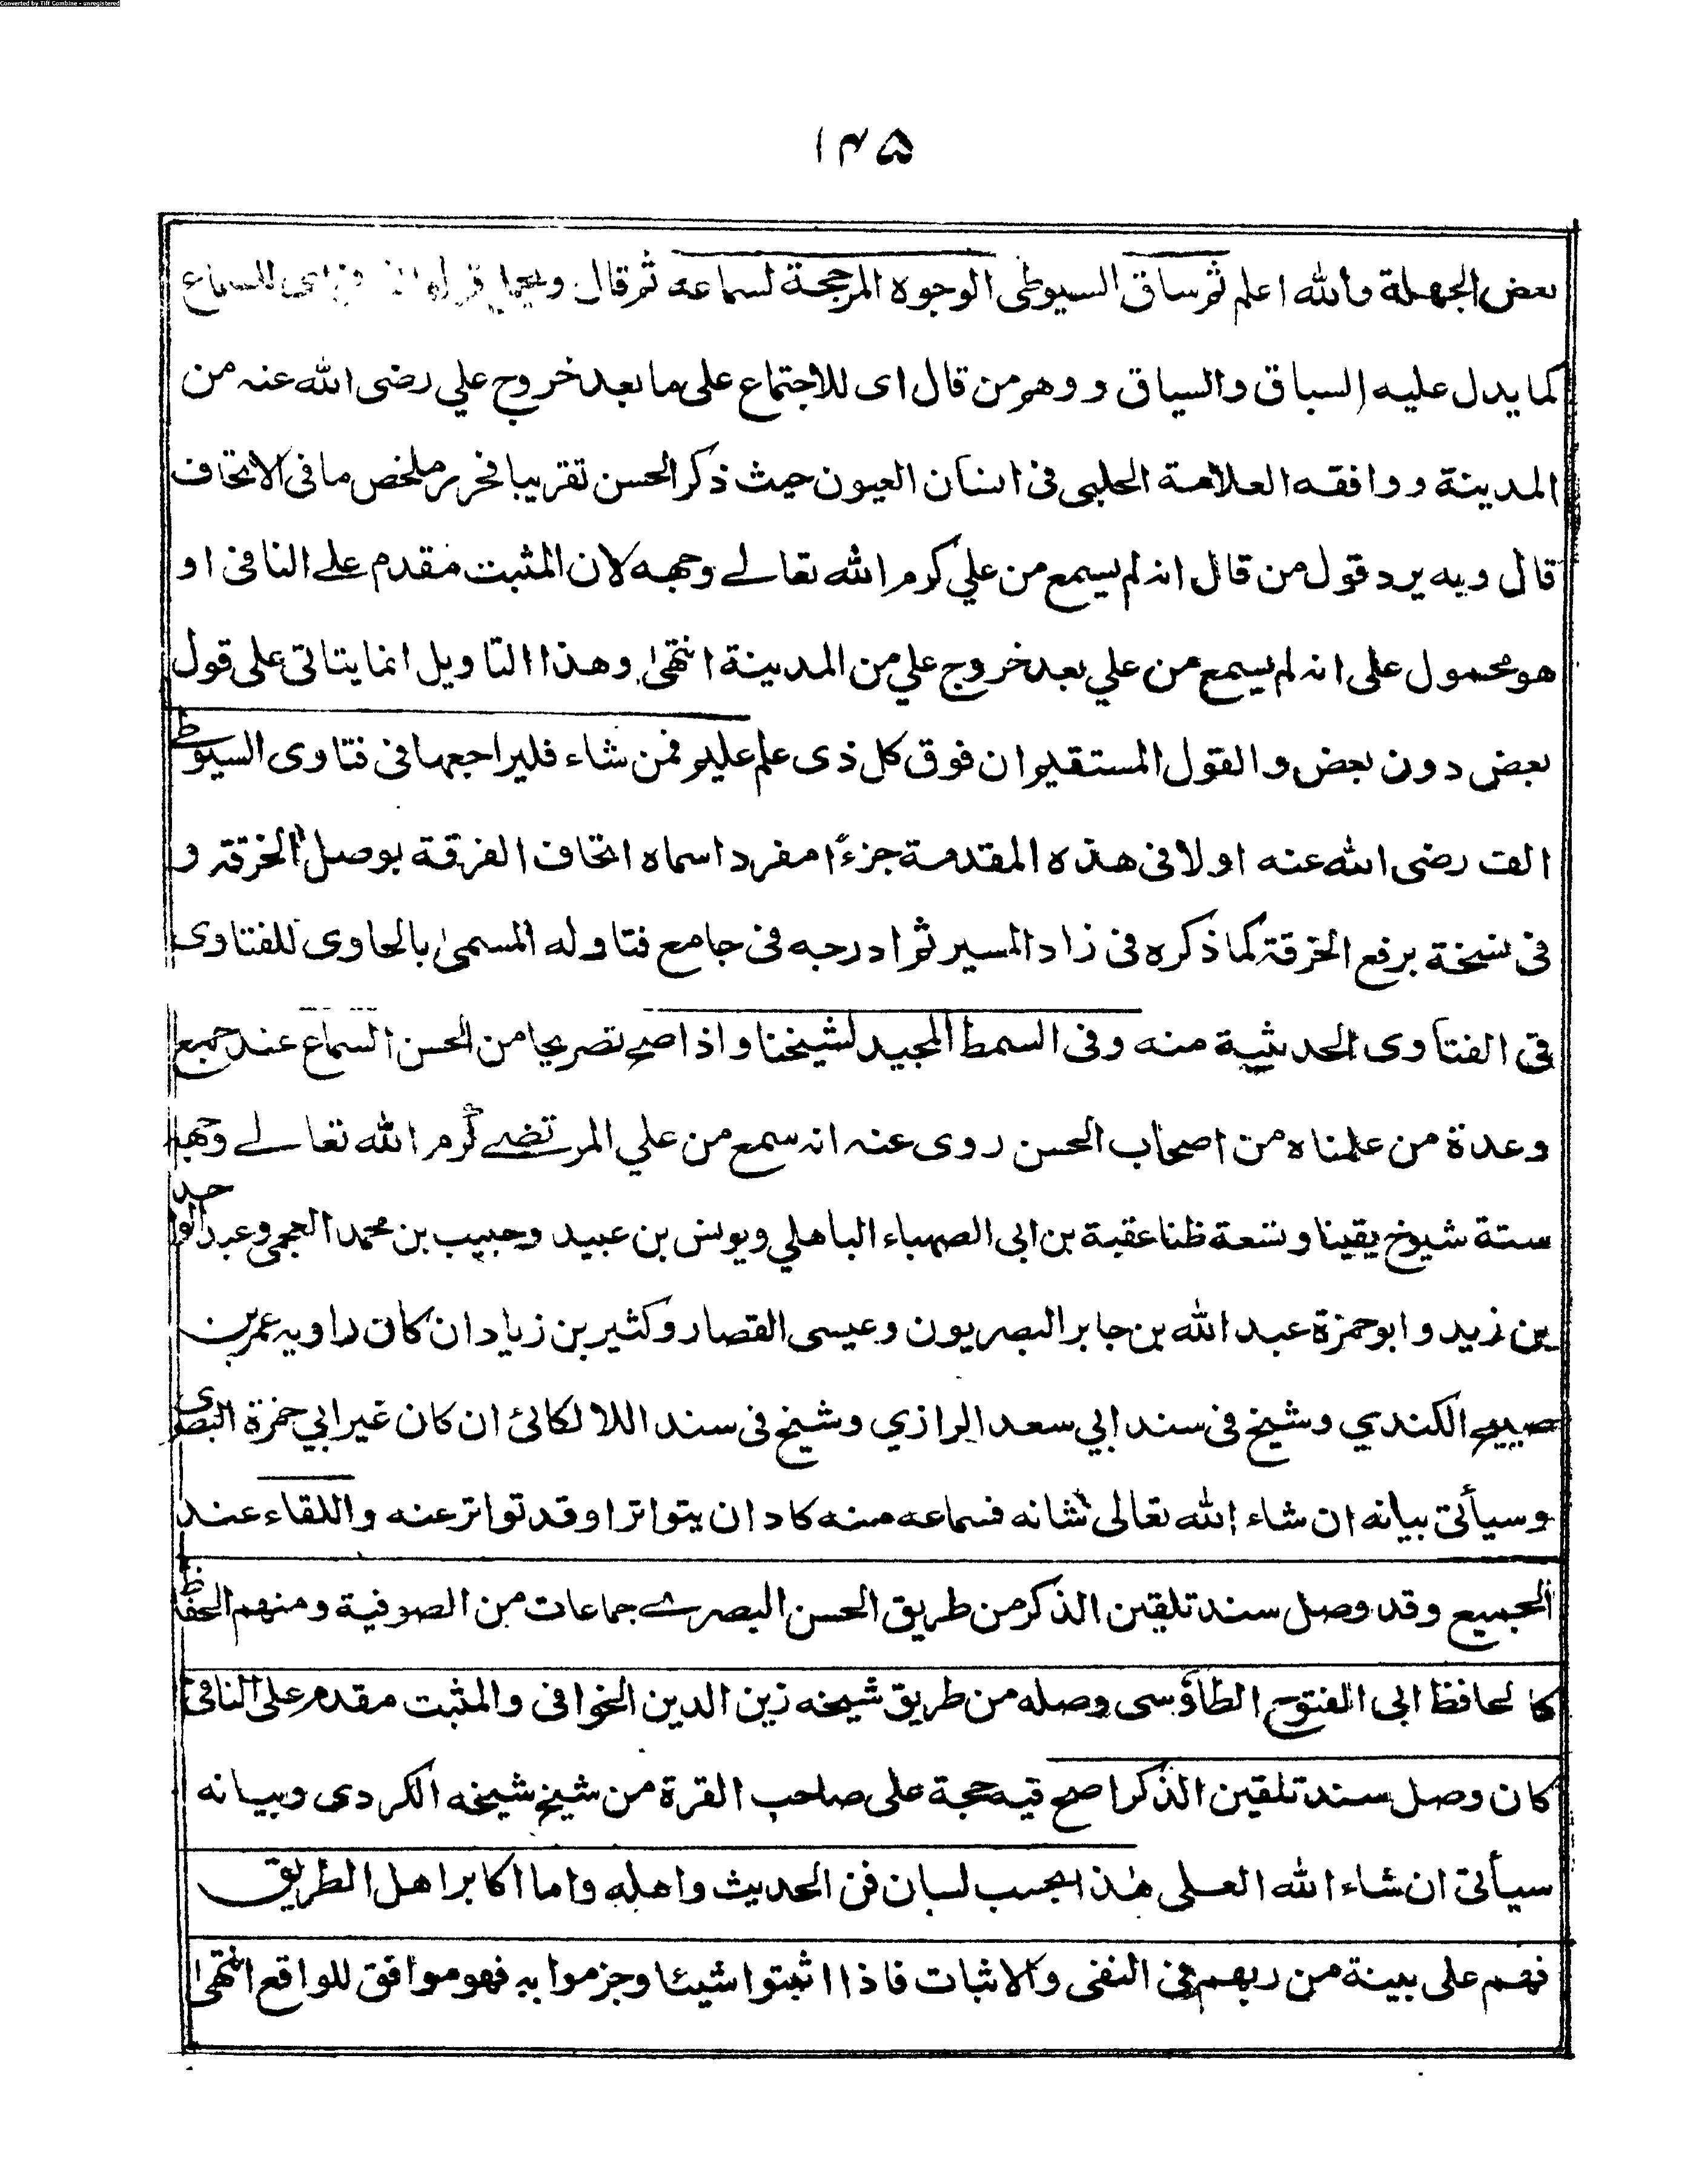 Converted by Tiff Combine - unregistered
۱۴۵
بعض الجهلة والله اعلم ثم ساق السيوطى الوجوه المرجحة لسماعه ثم قال للسماع
كما يدل عليه السباق والسياق ووهم من قال اى للاجتماع على ما بعد خروج علي رضى الله عنه من
المدينة ووافقه العلامة الحلبى فى انسان العيون حيث ذكر الحسن تقريبا فحرر ملخص ما فى الاتحاف
قال وبه يرد قول من قال انه لم يسمع من علي كرم الله تعالے وجهه لان المثبت مقدم علے النافى او
هو محمول على انه لم يسمع من علي بعد خروج علي من المدينة انتهىٰ وهذا التاويل انما يتاتى على قول
بعض دون بعض والقول المستقيم ان فوق كل ذى علم عليم فمن شاء فليراجعها فى فتاوى السيوطے
الف رضى الله عنه اولا فى هذه المقدمة جزءًا مفردا سماه اتحاف الفرقة بوصل الخرقة و
فى نسخة برفع الخرقة كما ذكره فى زاد المسير ثم ادرجه فى جامع فتاوله المسمىٰ بالحاوى للفتاوى
فى الفتاوى الحديثية منه وفى السمط المجيد لشيخنا واذا صح تصريحا من الحسن السماع عند جميع
وعدة من علمناه من اصحاب الحسن روى عنه انه سمع من علي المرتضے كرم الله تعالے وجهه
ستة شيوخ يقينا وتسعة ظنا عقبة بن ابى الصهباء الباهلي ويونس بن عبيد وحبيب بن محمد العجمى وعبد الواحد
بن زيد وابو حمزة عبد الله بن جابر البصريون وعيسى القصار وكثير بن زياد ان كان راويه عمر بن
صبيح الكندي وشيخ فى سند ابي سعد الرازي وشيخ فى سند اللالكائى ان كان غير ابي حمزة البصرى
وسيأتى بيانه ان شاء الله تعالى شانه فسماعه منه كاد ان يتواترا وقد تواتر عنه واللقاء عند
الجميع وقد وصل سند تلقين الذكر من طريق الحسن البصرے جماعات من الصوفية ومنهم الحفاظ
كالحافظ ابى الفتوح الطاؤسى وصله من طريق شيخه زين الدين الخوافى والمثبت مقدم على النافى
كان وصل سند تلقين الذكر اصح فيه حجة على صاحب القرة من شيخ شيخه الكردى وبيانه
سيأتى ان شاء الله العلى هذا بحسب لسان فن الحديث واهله واما اكابر اهل الطريق
فهم على بينة من ربهم فى النفى والاثبات فاذا اثبتوا شيئا وجزموا به فهو موافق للواقع انتهىٰ